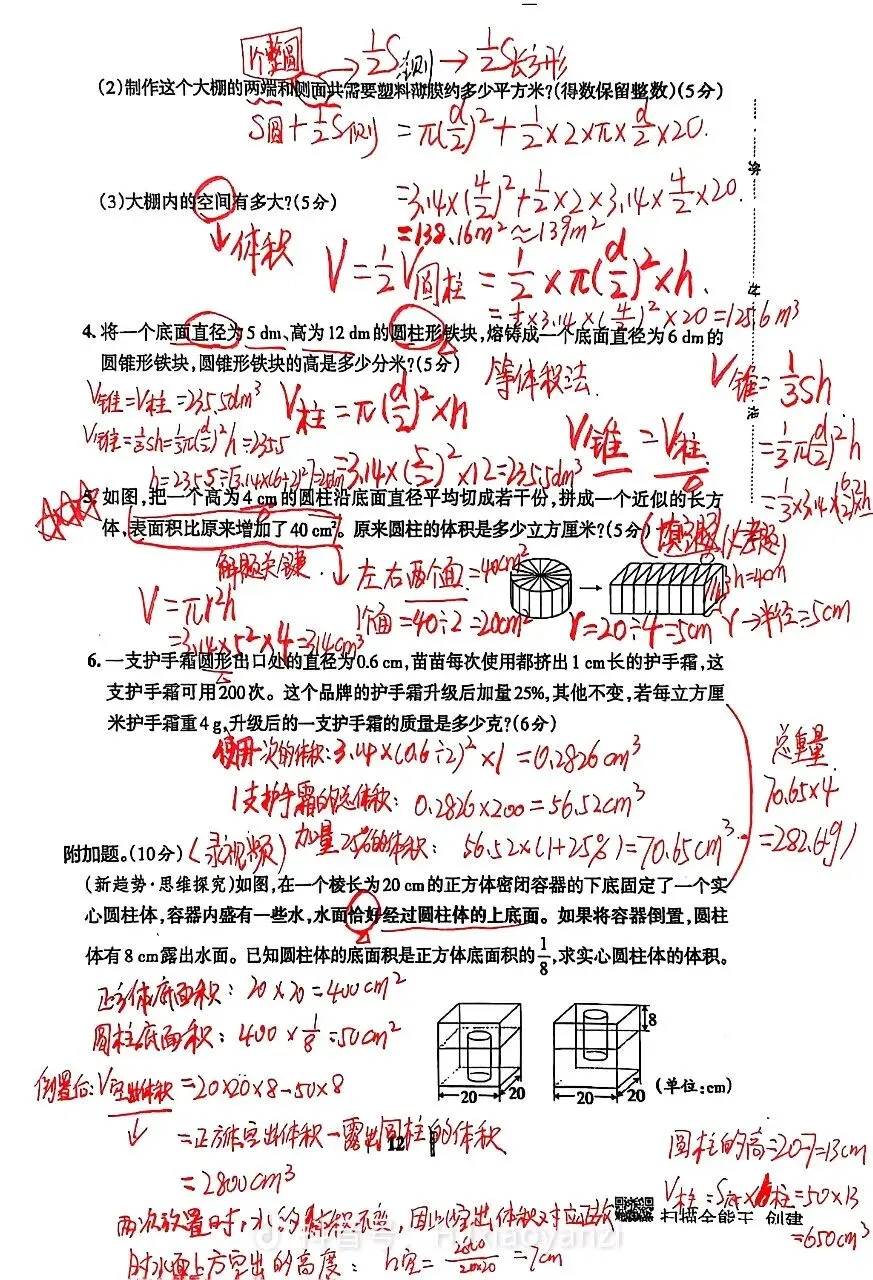 1个整圆 → 1/2S侧 → 1/2S长方形
(2)制作这个大棚的两端和侧面共需要塑料薄膜约多少平方米?(得数保留整数)(5分)
S圆+1/2S侧 =π(d/2)²+1/2×2×π×d/2×20.
=3.14×(4/2)²+1/2×2×3.14×4/2×20
=138.16m²≈139m²
(3)大棚内的空间有多大?(5分)
↓体积
V=1/2V圆柱=1/2×π(d/2)²×h.
=1/2×3.14×(4/2)²×20=125.6m³
4.将一个底面直径为5 dm、高为12 dm的圆柱形铁块,熔铸成一个底面直径为6 dm的
圆锥形铁块,圆锥形铁块的高是多少分米?(5分)
等体积法.
V锥=V柱=235.5dm³
V柱=π(d/2)²×h
V锥=1/3Sh
V锥=1/3Sh=1/3π(d/2)²h=235.5
V锥=V柱
=1/3π(d/2)²h
=3.14×(5/2)²×12=235.5dm³
5.如图,把一个高为4 cm的圆柱沿底面直径平均切成若干份,拼成一个近似的长方
体,表面积比原来增加了40 cm²。原来圆柱的体积是多少立方厘米?(5分)
(填空题必考题)
解题关键.
↓左右两个面=40cm²
V=πr²h
=3.14×5²×4=314cm³
1个面=40÷2=20cm²
r=20÷4=5cm
r→半径=5cm
6.一支护手霜圆形出口处的直径为0.6 cm,苗苗每次使用都挤出1 cm长的护手霜,这
支护手霜可用200次。这个品牌的护手霜升级后加量25%,其他不变,若每立方厘
米护手霜重4 g,升级后的一支护手霜的质量是多少克?(6分)
使用一次的体积:3.14×(0.6÷2)²×1=0.2826cm³
1支护手霜的总体积:0.2826×200=56.52cm³
加量25%的体积:56.52×(1+25%)=70.65cm³
总重量
70.65×4
=282.6(g)
附加题。(10分)(录视频)
(新趋势·思维探究)如图,在一个棱长为20 cm的正方体密闭容器的下底固定了一个实
心圆柱体,容器内盛有一些水,水面恰好经过圆柱体的上底面。如果将容器倒置,圆柱
体有8 cm露出水面。已知圆柱体的底面积是正方体底面积的1/8,求实心圆柱体的体积。
正方体底面积:20×20=400cm²
圆柱底面积:400×1/8=50cm²
倒置后:V空出体积=20×20×8-50×8
↓ =正方体空出体积-露出圆柱的体积
=2800cm³
8
20 20 20 20 (单位:cm)
12
两次放置时,水的体积不变,因此空出体积对应正放
时水面上方空出的高度:h空=2800/20×20=7cm
圆柱的高=20-7=13cm
V柱=S底×h柱=50×13
=650cm³
扫描全能王 创建
抖音号:Huxiaoyanzi